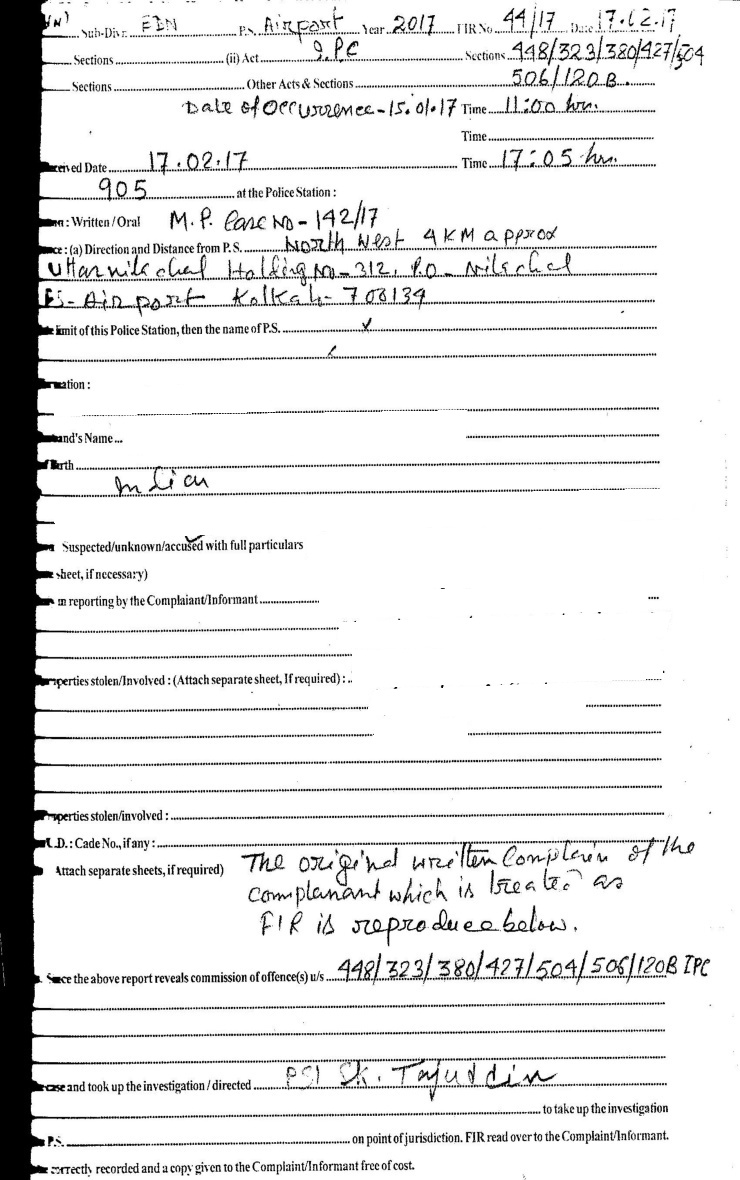 Sub-Divn. P.S. Airport Year 2017 FIR No. 44/17 Date 17.02.17
Sections (ii) Act I.PC Sections 448/323/380/427/504
Sections Other Acts & Sections 506/120B.
Date of Occurrence - 15.01.17 Time 11:00 hrs.
Time
Date 17.02.17 Time 17:05 hrs.
905 at the Police Station :
: Written / Oral M.P. Case No - 142/17
: (a) Direction and Distance from P.S. North West 4 KM approx
Holding No - 312, P.O - Nilachal
PS - Airport Kolkata - 700134
limit of this Police Station, then the name of P.S.
:
's Name
Birth
Indian
Suspected/unknown/accused with full particulars
sheet, if necessary)
in reporting by the Complaiant/Informant
perties stolen/Involved : (Attach separate sheet, If required) :
perties stolen/involved :
.D. : Cade No., if any :
Attach separate sheets, if required) The original written Complain of the
complanant which is treated as
FIR is reproduce below.
Since the above report reveals commission of offence(s) u/s 448/323/380/427/504/506/120B IPC
case and took up the investigation / directed PSI Sk. Tajuddin
to take up the investigation
P.S. on point of jurisdiction. FIR read over to the Complaint/Informant.
correctly recorded and a copy given to the Complaint/Informant free of cost.